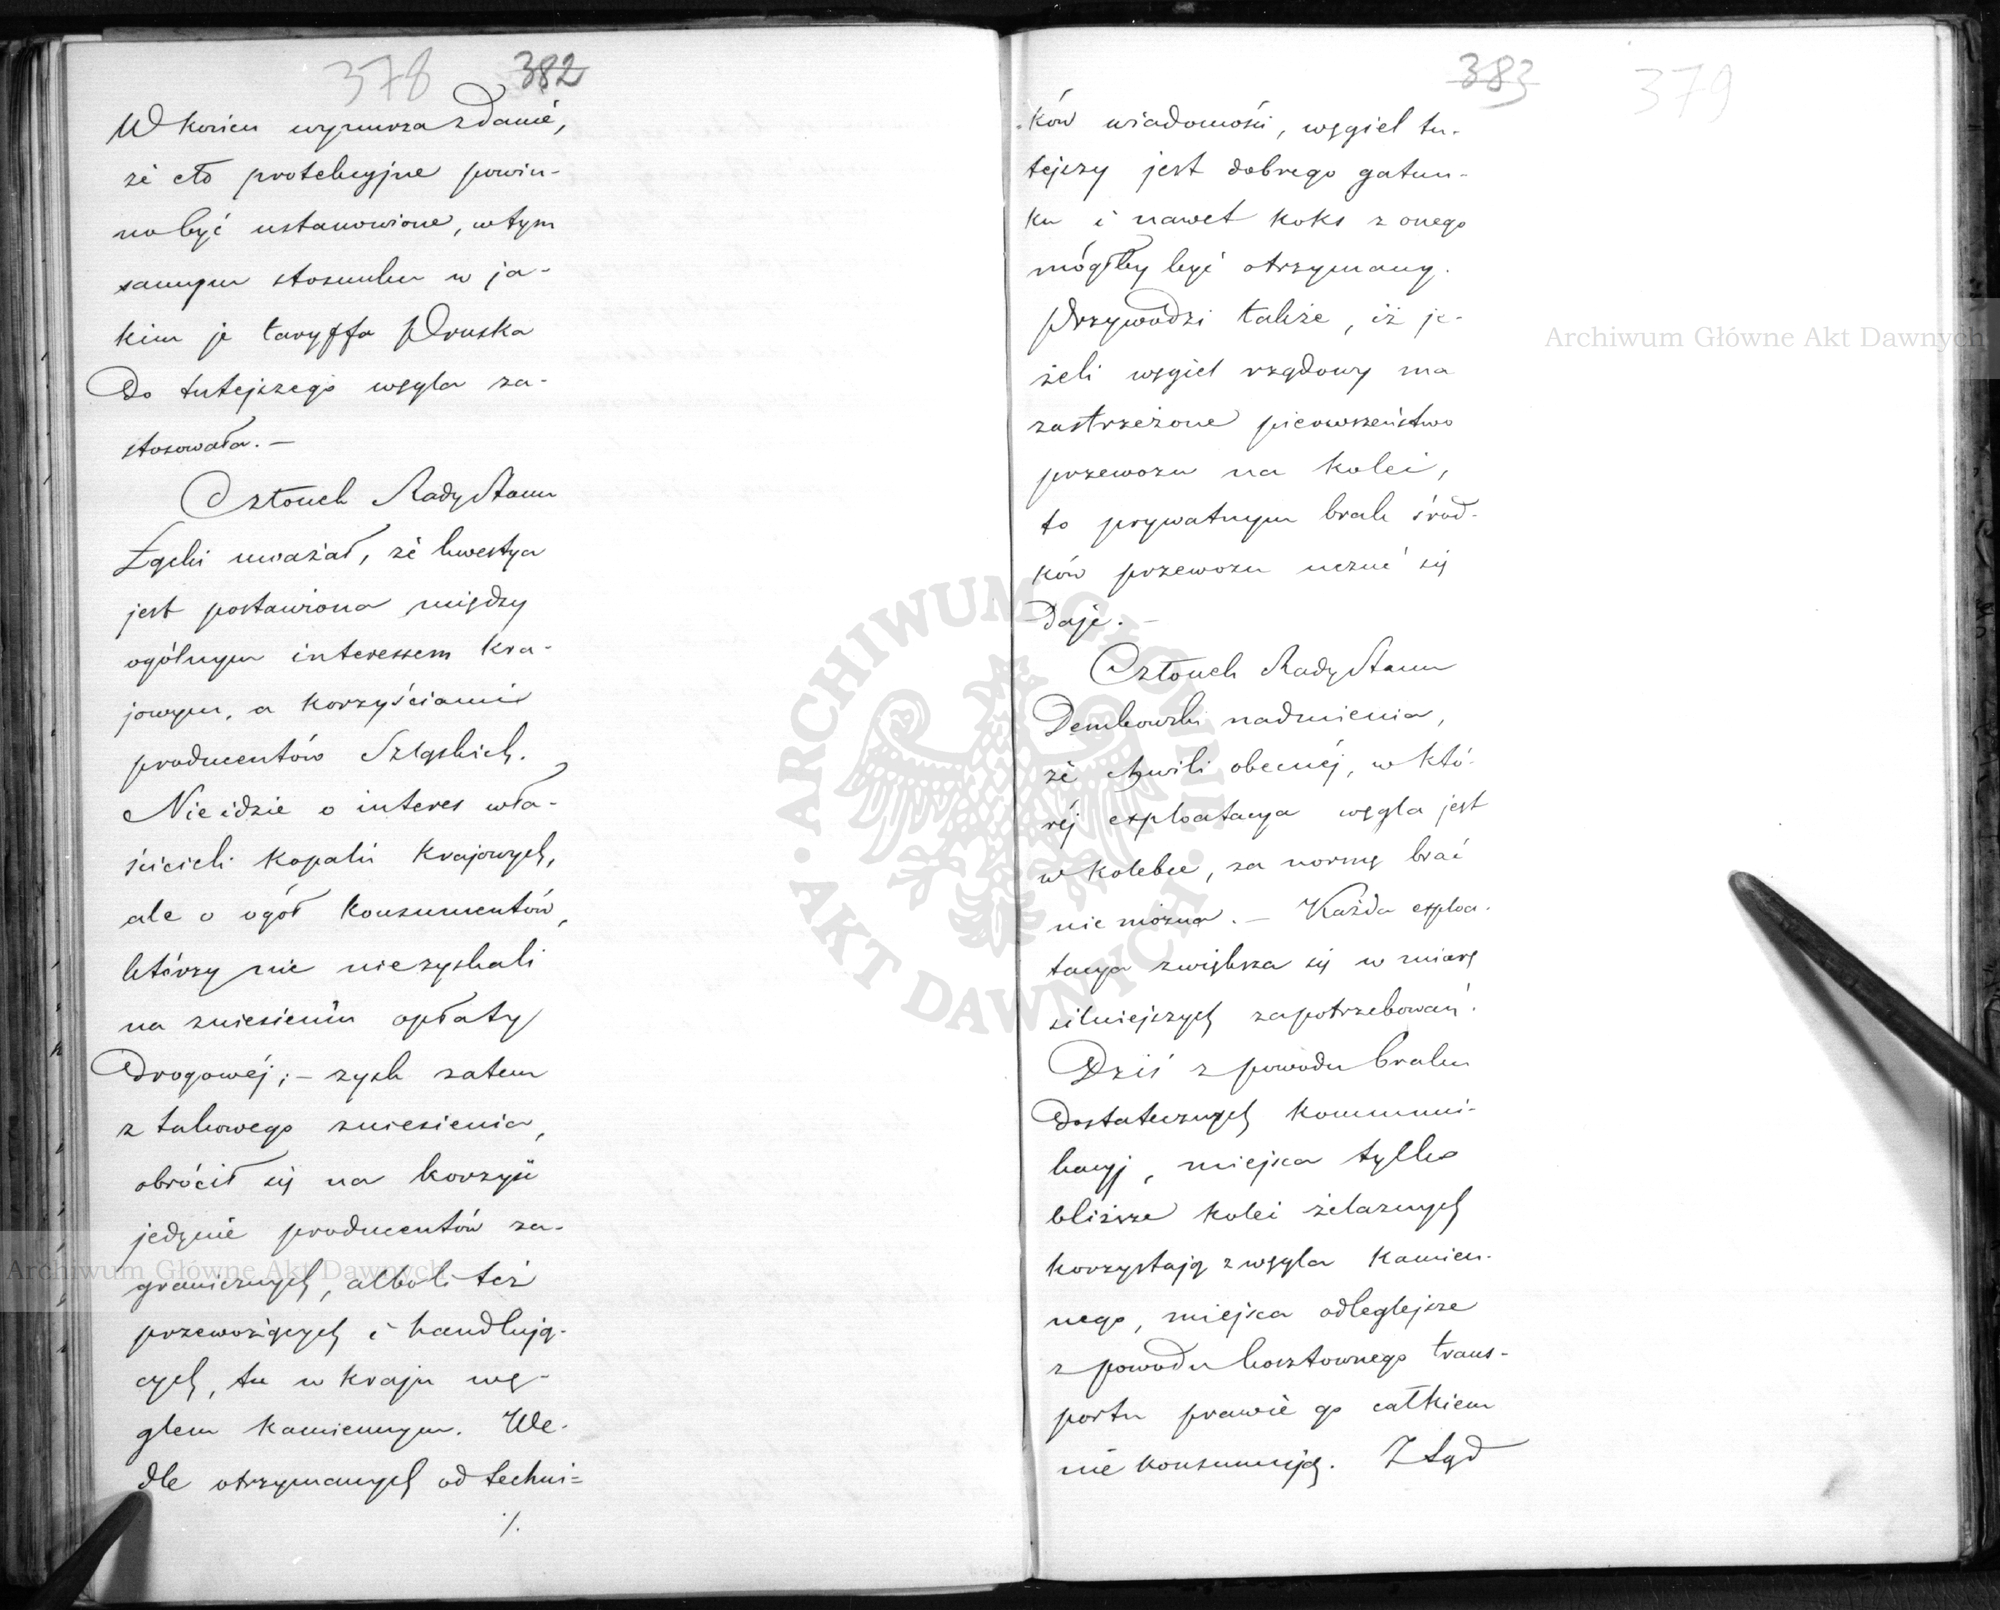 378 382
W końcu wynurza zdanie,
że cło protekcyjne powin-
no być ustanowione, w tym
samym stosunku w ja-
kim je taryffa Pruska
do tutejszego węgla za-
stosowała. —
Członek Rady Stanu
Łęcki uważał, że kwestya
jest postawiona między
ogólnym interessem kra-
jowym, a korzyściami
producentów Szląskich.
Nie idzie o interes wła-
ścicieli kopalń krajowych,
ale o ogół konsumentów,
którzy nic nie zyskali
na zniesieniu opłaty
drogowéj; — zysk zatem
z takowego zniesienia,
obrócił się na korzyść
jedynie producentów za-
granicznych, alboli też
przewożących i handlują-
cych, tu w kraju wę-
glem kamiennym. We-
dle otrzymanych od techni=
/.
383 379
ków wiadomości, węgiel tu-
tejszy jest dobrego gatun-
ku i nawet koks z onego
mógłby być otrzymany.
Przywodzi także, iż je-
żeli węgiel rządowy ma
zastrzeżone pierwszeństwo
przewozu na kolei,
to prywatnym brak środ-
ków przewozu uczuć się
daje. —
Członek Rady Stanu
Dembowski nadmienia,
że chwili obecnéj, w któ-
réj exploatacya węgla jest
w kolebce, za normę brać
nie można. — Każda exploa-
tacya zwiększa się w miarę
silniejszych zapotrzebowań.
Dziś z powodu braku
dostatecznych kommuni-
kacyj, miejsca tylko
bliższe kolei żelaznych
korzystają z węgla kamien-
nego, miejsca odleglejsze
z powodu kosztownego trans-
portu prawie go całkiem
nie konsumują. Ztąd
Archiwum Główne Akt Dawnych
Archiwum Główne Akt Dawnych
ARCHIWUM GŁÓWNE AKT DAWNYCH